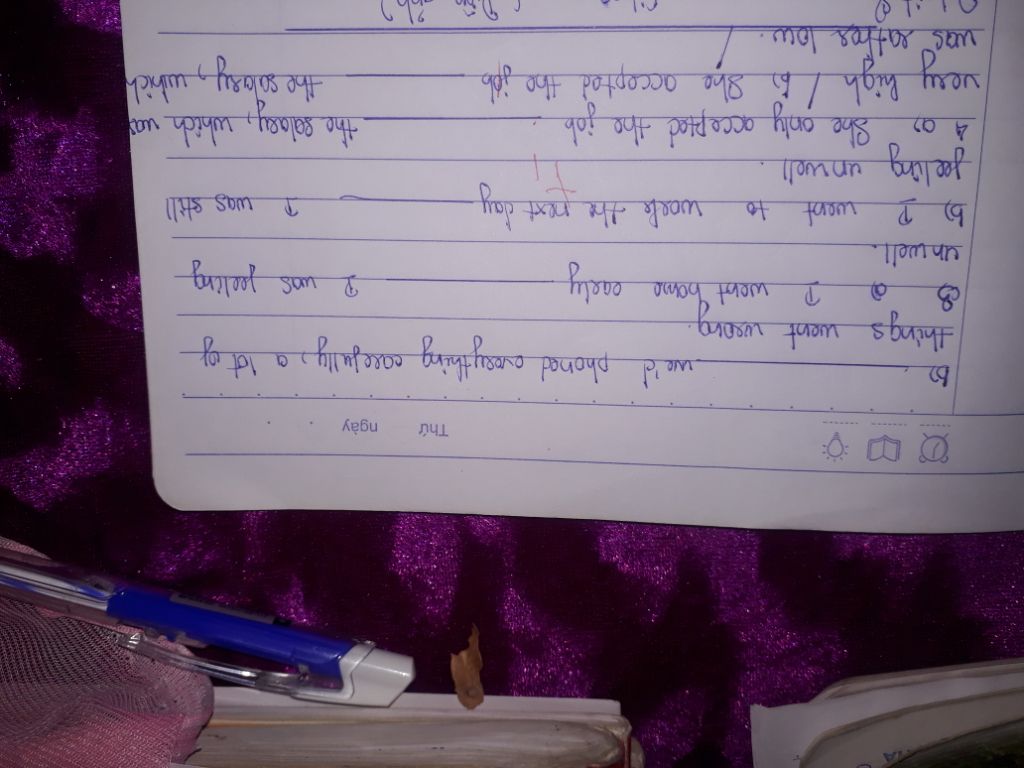 Thứ ngày
b) ______ we'd phoned everything carefully, a lot of
things went wrong.
3 a I went home early ______ I was feeling
unwell.
b) I went to work the next day ______ I was still
feeling unwell.
4 a, She only accepted the job ______ the salary, which was
very high / b, She accepted the job ______ the salary, which
was rather low. /